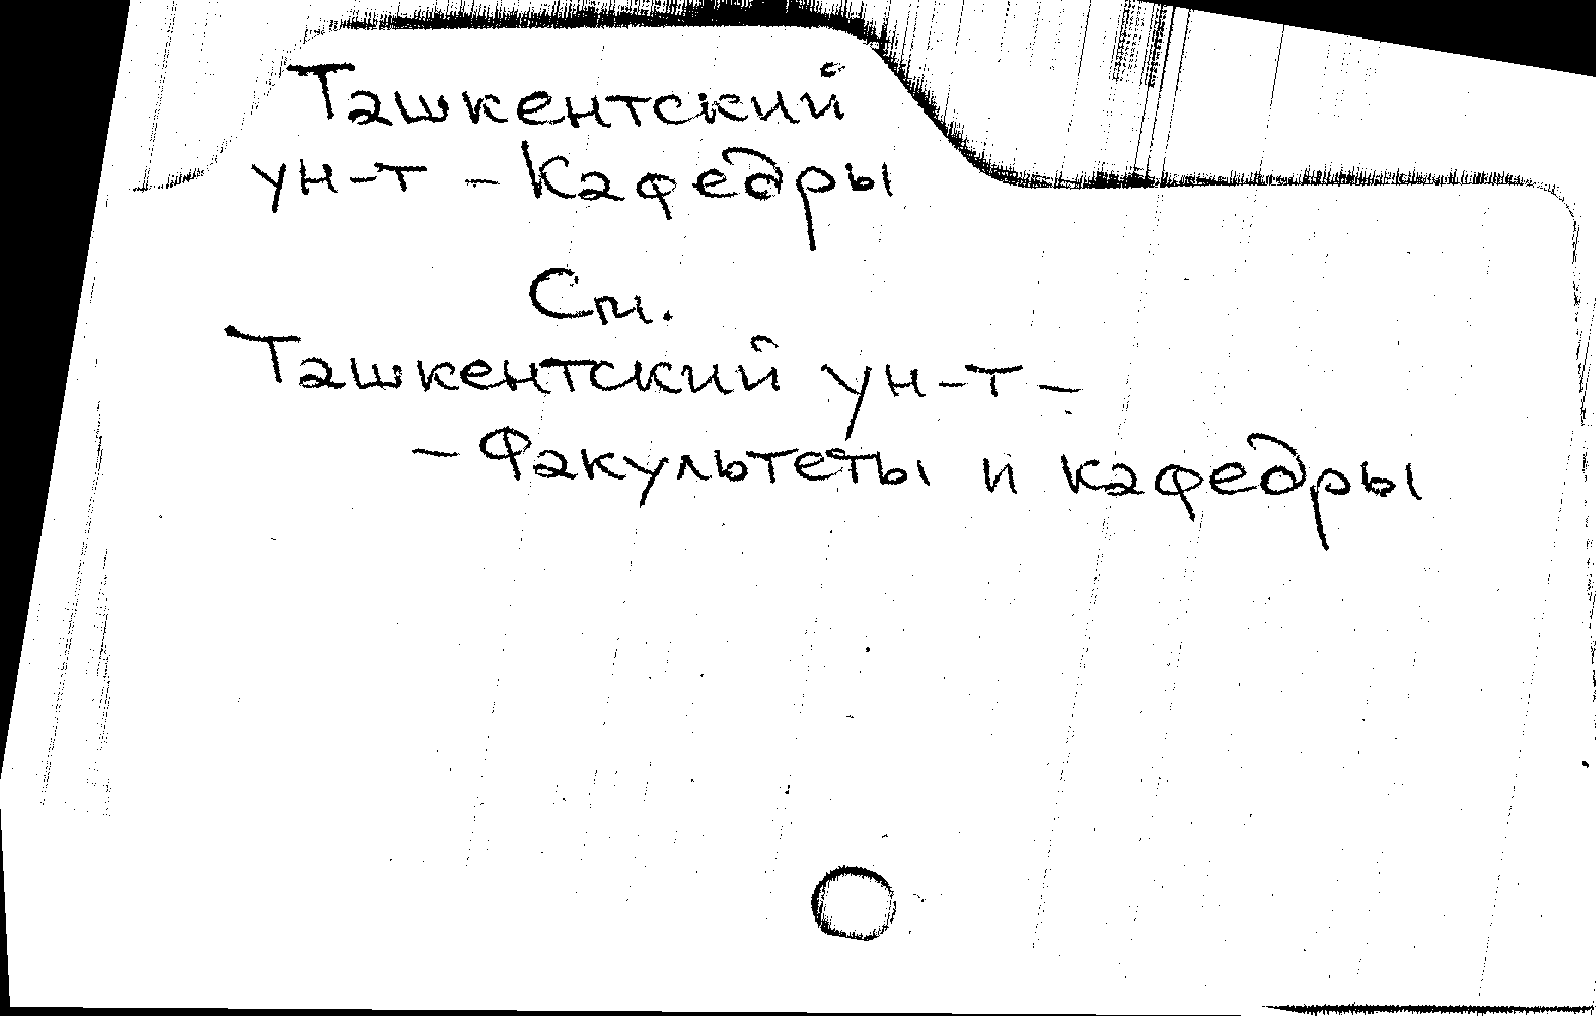 Ташкентский
ун-т - Кафедры
См.
Ташкентский ун-т -
- Факультеты и кафедры